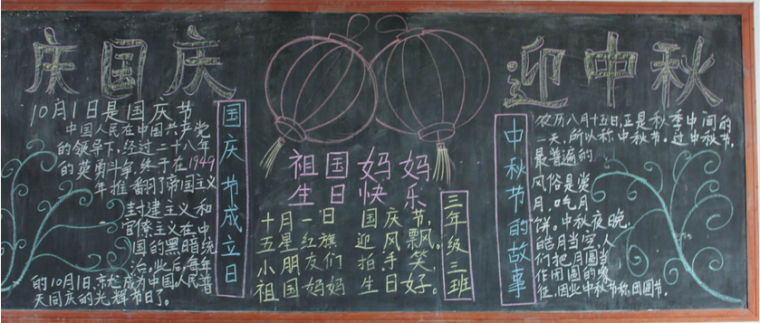 庆国庆
10月1日是国庆节
中国人民在中国共产党
的领导下，经过二十八年
的英勇斗争，终于在1949
年推翻了帝国主义
封建主义和
官僚主义在中
国的黑暗统
治，此后每年
的10月1日，就成为中国人民普
天同庆的光辉节日了。
国庆节成立日
祖国妈妈
生日快乐
十月一日 国庆节，
五星红旗 迎风飘。
小朋友们 拍手笑，
祖国妈妈 生日好。
三年级三班
迎中秋
中秋节的故事
农历八月十五日，正是秋季中间的
一天，所以称中秋节。过中秋节，
最普遍的
风俗是赏
月、吃月
饼。中秋夜晚，
皓月当空，人
们把月圆当
作团圆的象
征，因此中秋节称团圆节。